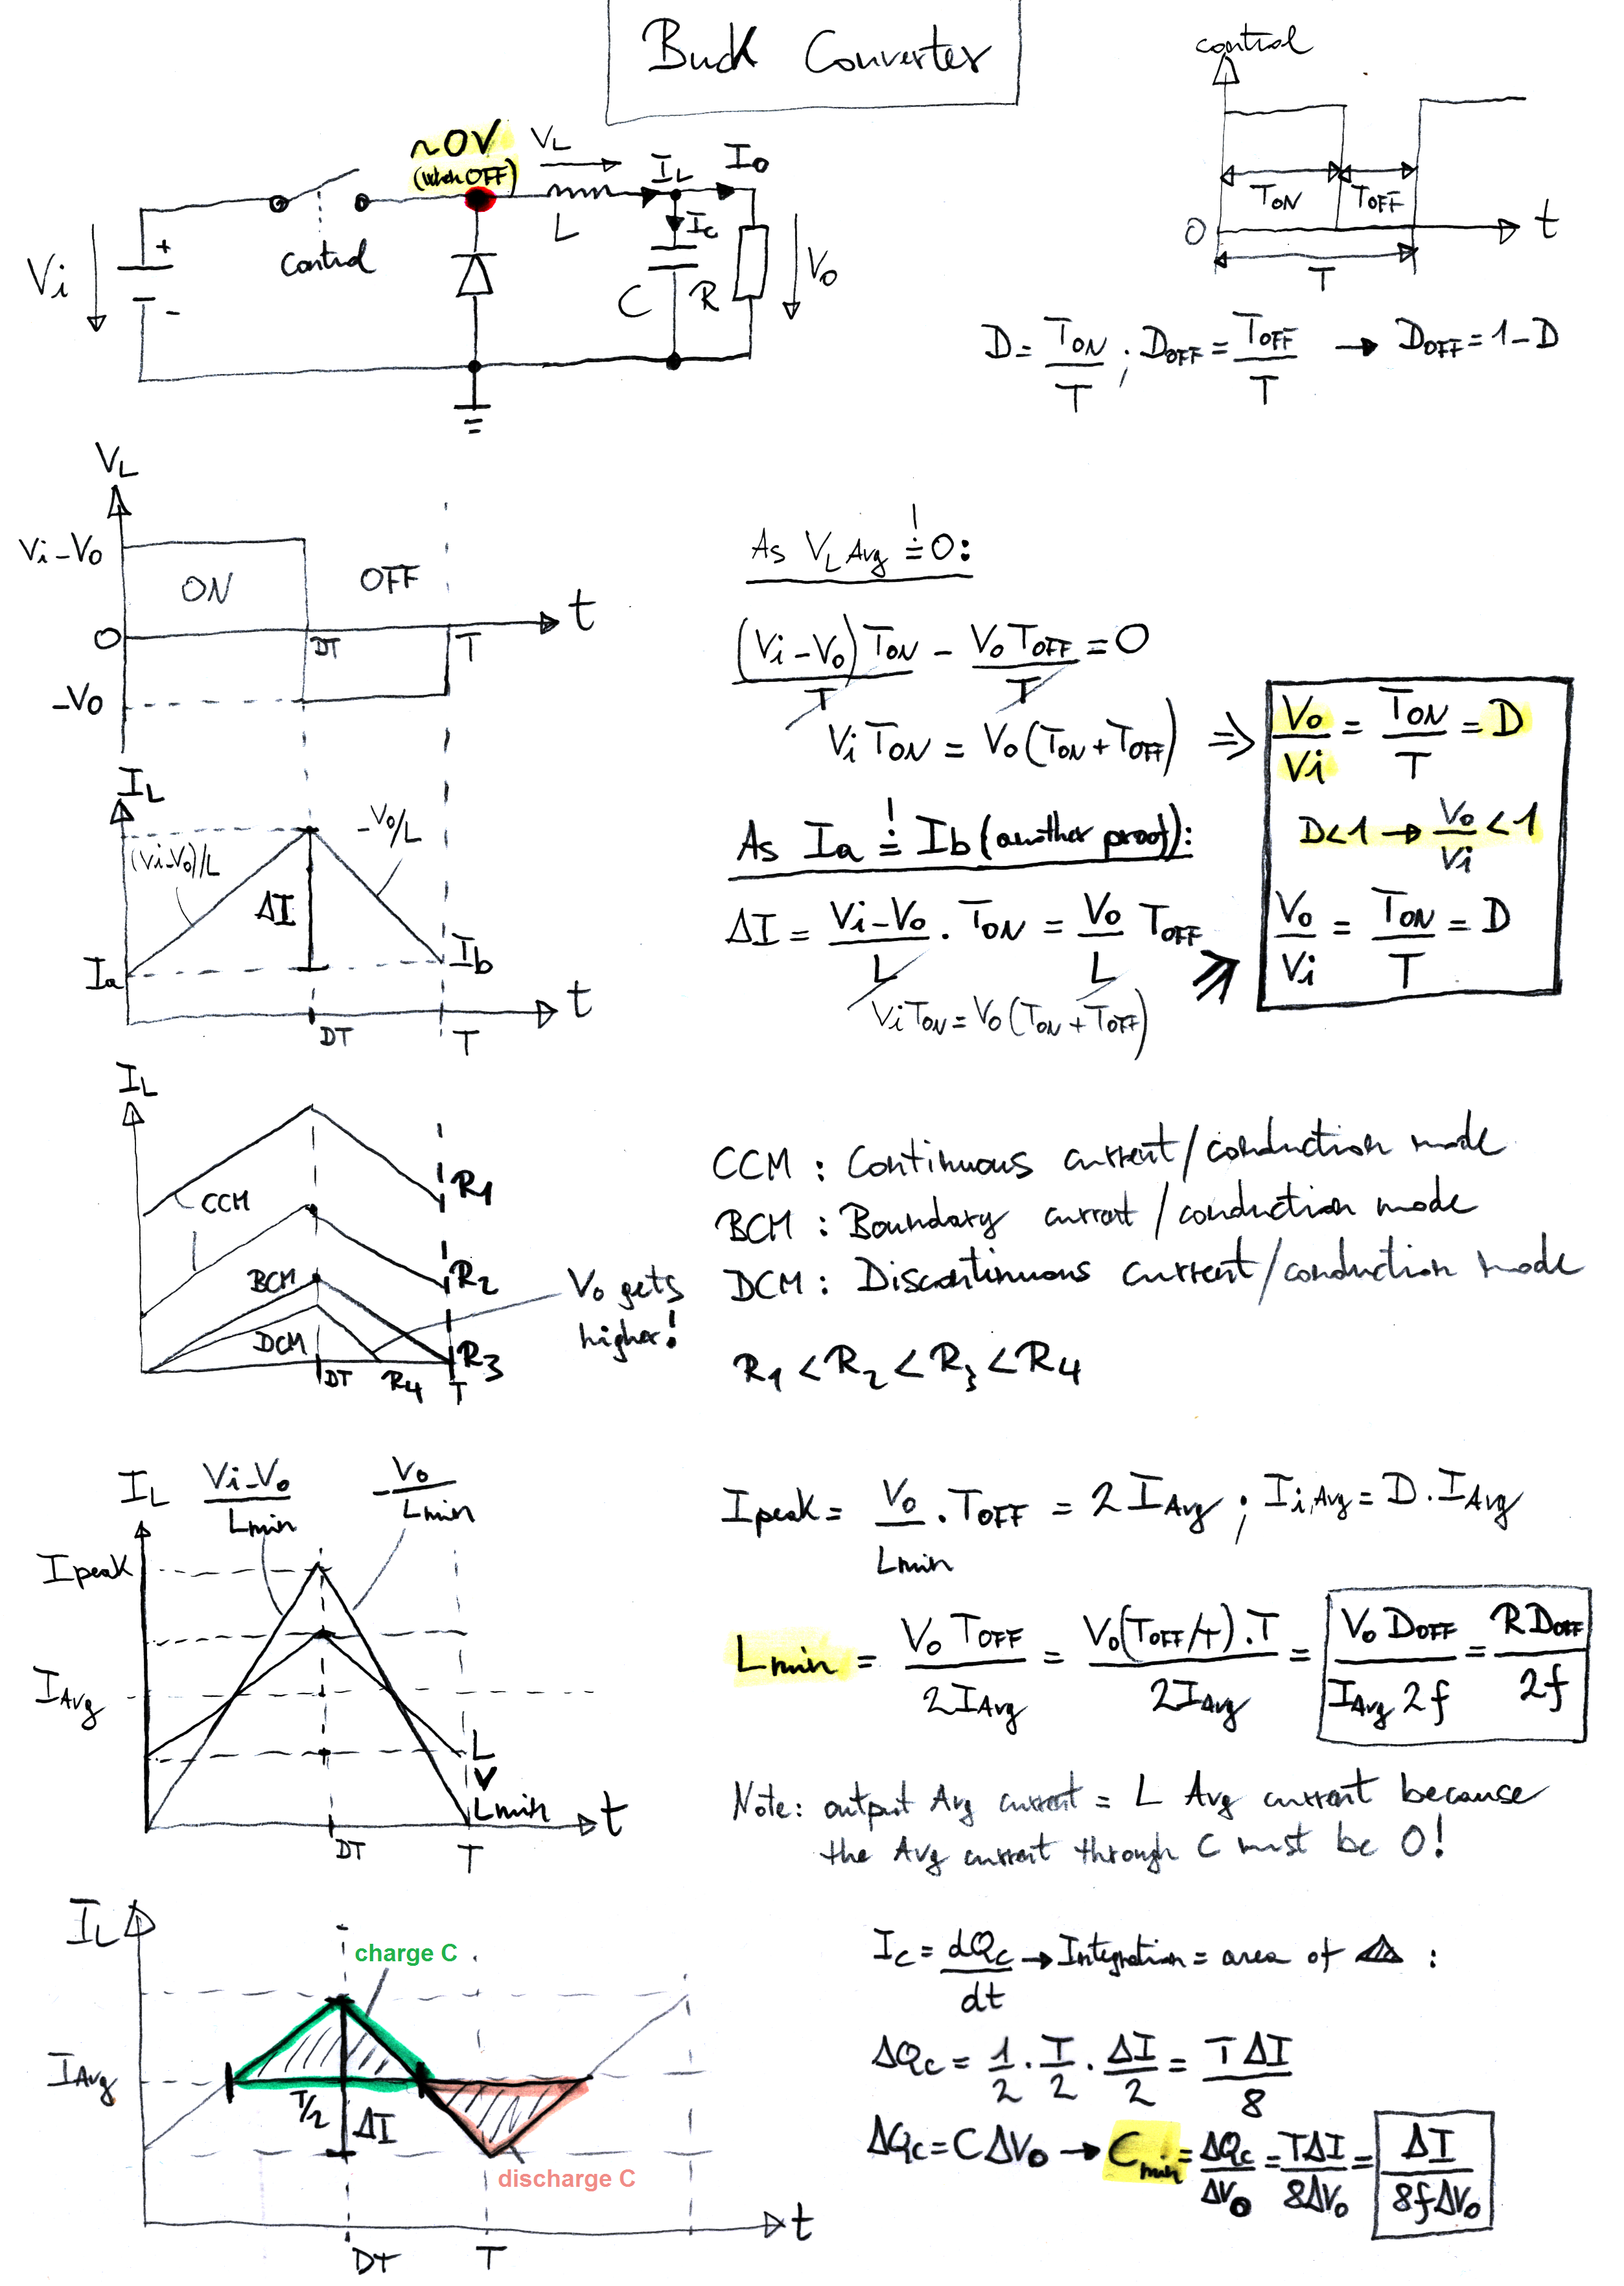 Buck Converter
control
~0V
(when OFF)
VL
IL
Io
Ic
L
Vi
+
-
control
C
R
Vo
TON
TOFF
0
t
T
D = TON/T ; DOFF = TOFF/T → DOFF = 1-D
VL
Vi-Vo
ON
OFF
t
0
DT
T
-Vo
As VL Avg =! 0:
(Vi-Vo) TON/T - Vo TOFF/T = 0
Vi TON = Vo (TON + TOFF) ⇒
Vo/Vi = TON/T = D
D<1 → Vo/Vi <1
Vo/Vi = TON/T = D
IL
-Vo/L
(Vi-Vo)/L
ΔI
Ia
Ib
t
DT
T
As Ia =! Ib (another proof):
ΔI = Vi-Vo/L . TON = Vo/L TOFF
Vi TON = Vo (TON + TOFF)
⇒
IL
CCM
R1
R2
BCM
DCM
R3
DT
R4
T
Vo gets
higher!
CCM : Continuous current/conduction mode
BCM : Boundary current/conduction mode
DCM : Discontinuous current/conduction mode
R1 < R2 < R3 < R4
IL
Vi-Vo/Lmin
-Vo/Lmin
Ipeak
IAvg
L
V
Lmin
t
DT
T
Ipeak = Vo/Lmin . TOFF = 2 IAvg ; Ii,Avg = D . IAvg
Lmin = Vo TOFF/2IAvg = Vo(TOFF/T).T/2IAvg = Vo DOFF/IAvg 2f = R DOFF/2f
Note: output Avg current = L Avg current because
the Avg current through C must be 0!
IL
charge C
IAvg
T/2
ΔI
discharge C
t
DT
T
Ic = dQc/dt → Integration = area of △ :
ΔQc = 1/2 . T/2 . ΔI/2 = TΔI/8
ΔQc = CΔVo → Cmin = ΔQc/ΔVo = TΔI/8ΔVo = ΔI/8fΔVo